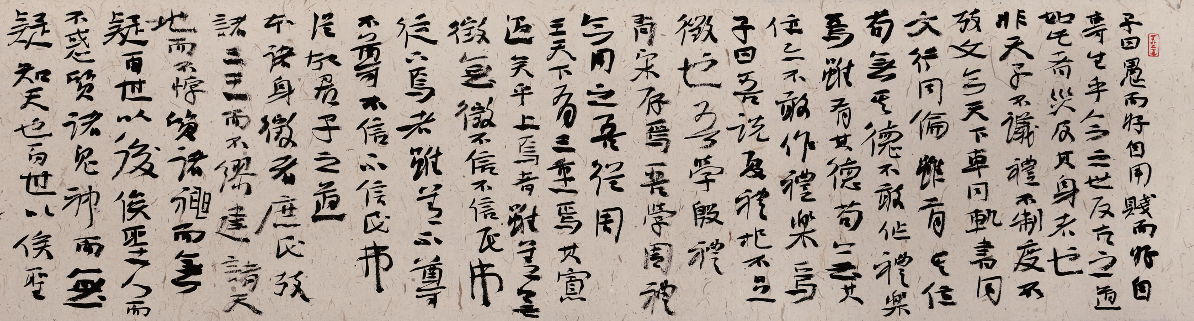 子曰愚而好自用賤而好自
專生乎今之世反古之道
如此者災及其身者也
非天子不議禮不制度不
攷文今天下車同軌書同
文行同倫雖有其位
苟無其德不敢作禮樂
焉雖有其德苟無其
位亦不敢作禮樂焉
子曰吾說夏禮杞不足
徵也吾學殷禮
有宋存焉吾學周禮
今用之吾從周
王天下有三重焉其寡
過矣乎上焉者雖善無
徵無徵不信不信民弗
從下焉者雖善不尊
不尊不信不信民弗
從故君子之道
本諸身徵者庶民攷
諸三王而不繆建諸天
地而不悖質諸神而無
疑百世以後俟聖人而
不惑質諸鬼神而無
疑知天也百世以俟聖